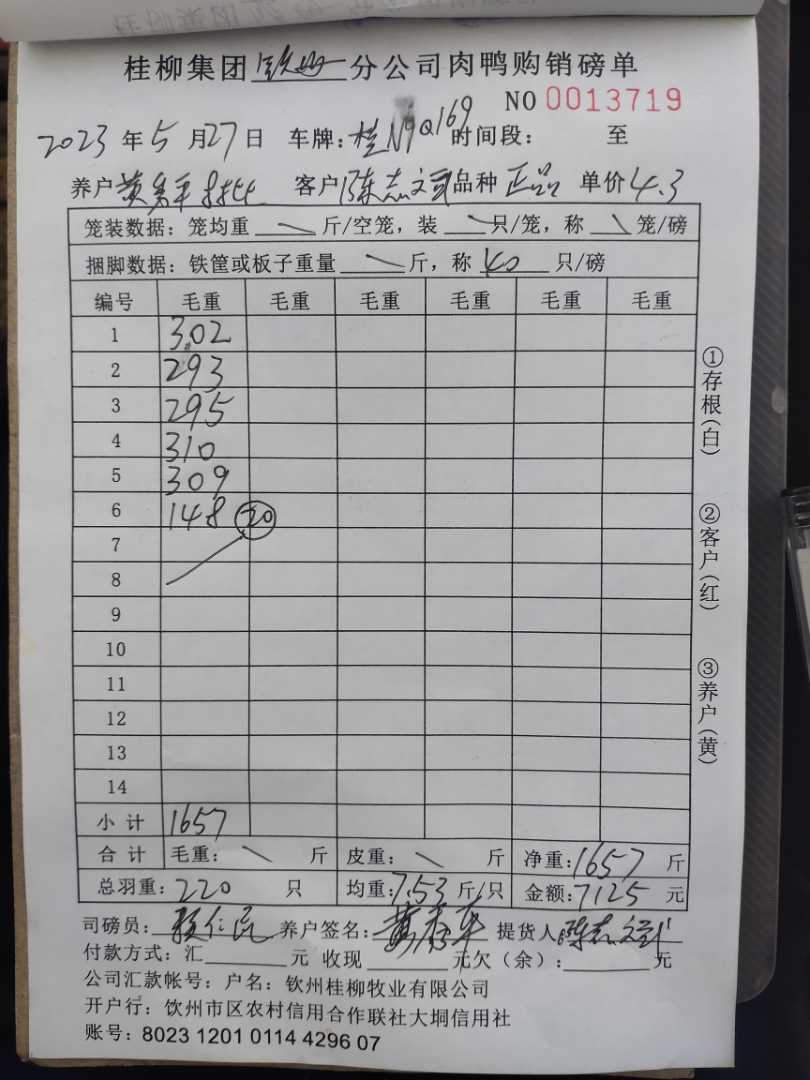 桂柳集团钦州分公司肉鸭购销磅单
NO 0013719
2023年5月27日 车牌:桂N9Q169 时间段: 至
养户黄 客户陈志文 品种正品 单价4.3
笼装数据:笼均重 斤/空笼,装 只/笼,称 笼/磅
捆脚数据:铁筐或板子重量 斤,称40只/磅
编号 毛重 毛重 毛重 毛重 毛重 毛重
1 302
2 293
3 295
4 310
5 309
6 148 20
7
8
9
10
11
12
13
14
小计 1657
合计 毛重: 斤 皮重: 斤 净重:1657斤
总羽重:220只 均重:7.53斤/只 金额:7125元
司磅员: 养户签名:黄 提货人:陈志文
付款方式:汇 元 收现 元欠(余): 元
公司汇款帐号:户名:钦州桂柳牧业有限公司
开户行:饮州市区农村信用合作联社大垌信用社
账号:8023 1201 0114 4296 07
①存根(白)
②客户(红)
③养户(黄)